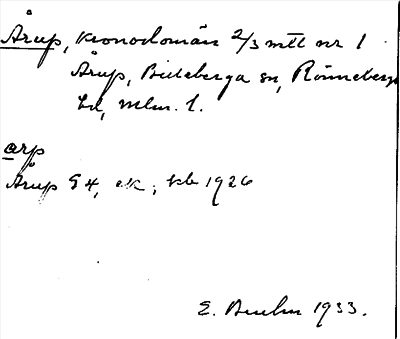 Årup, kronodomän 2/3 mtl nr 1
Årup, Billeberga sn, Rönnebergs
hd, Mlm. l.
arp
Årup G4, ek, kb 1926
E. 1933.